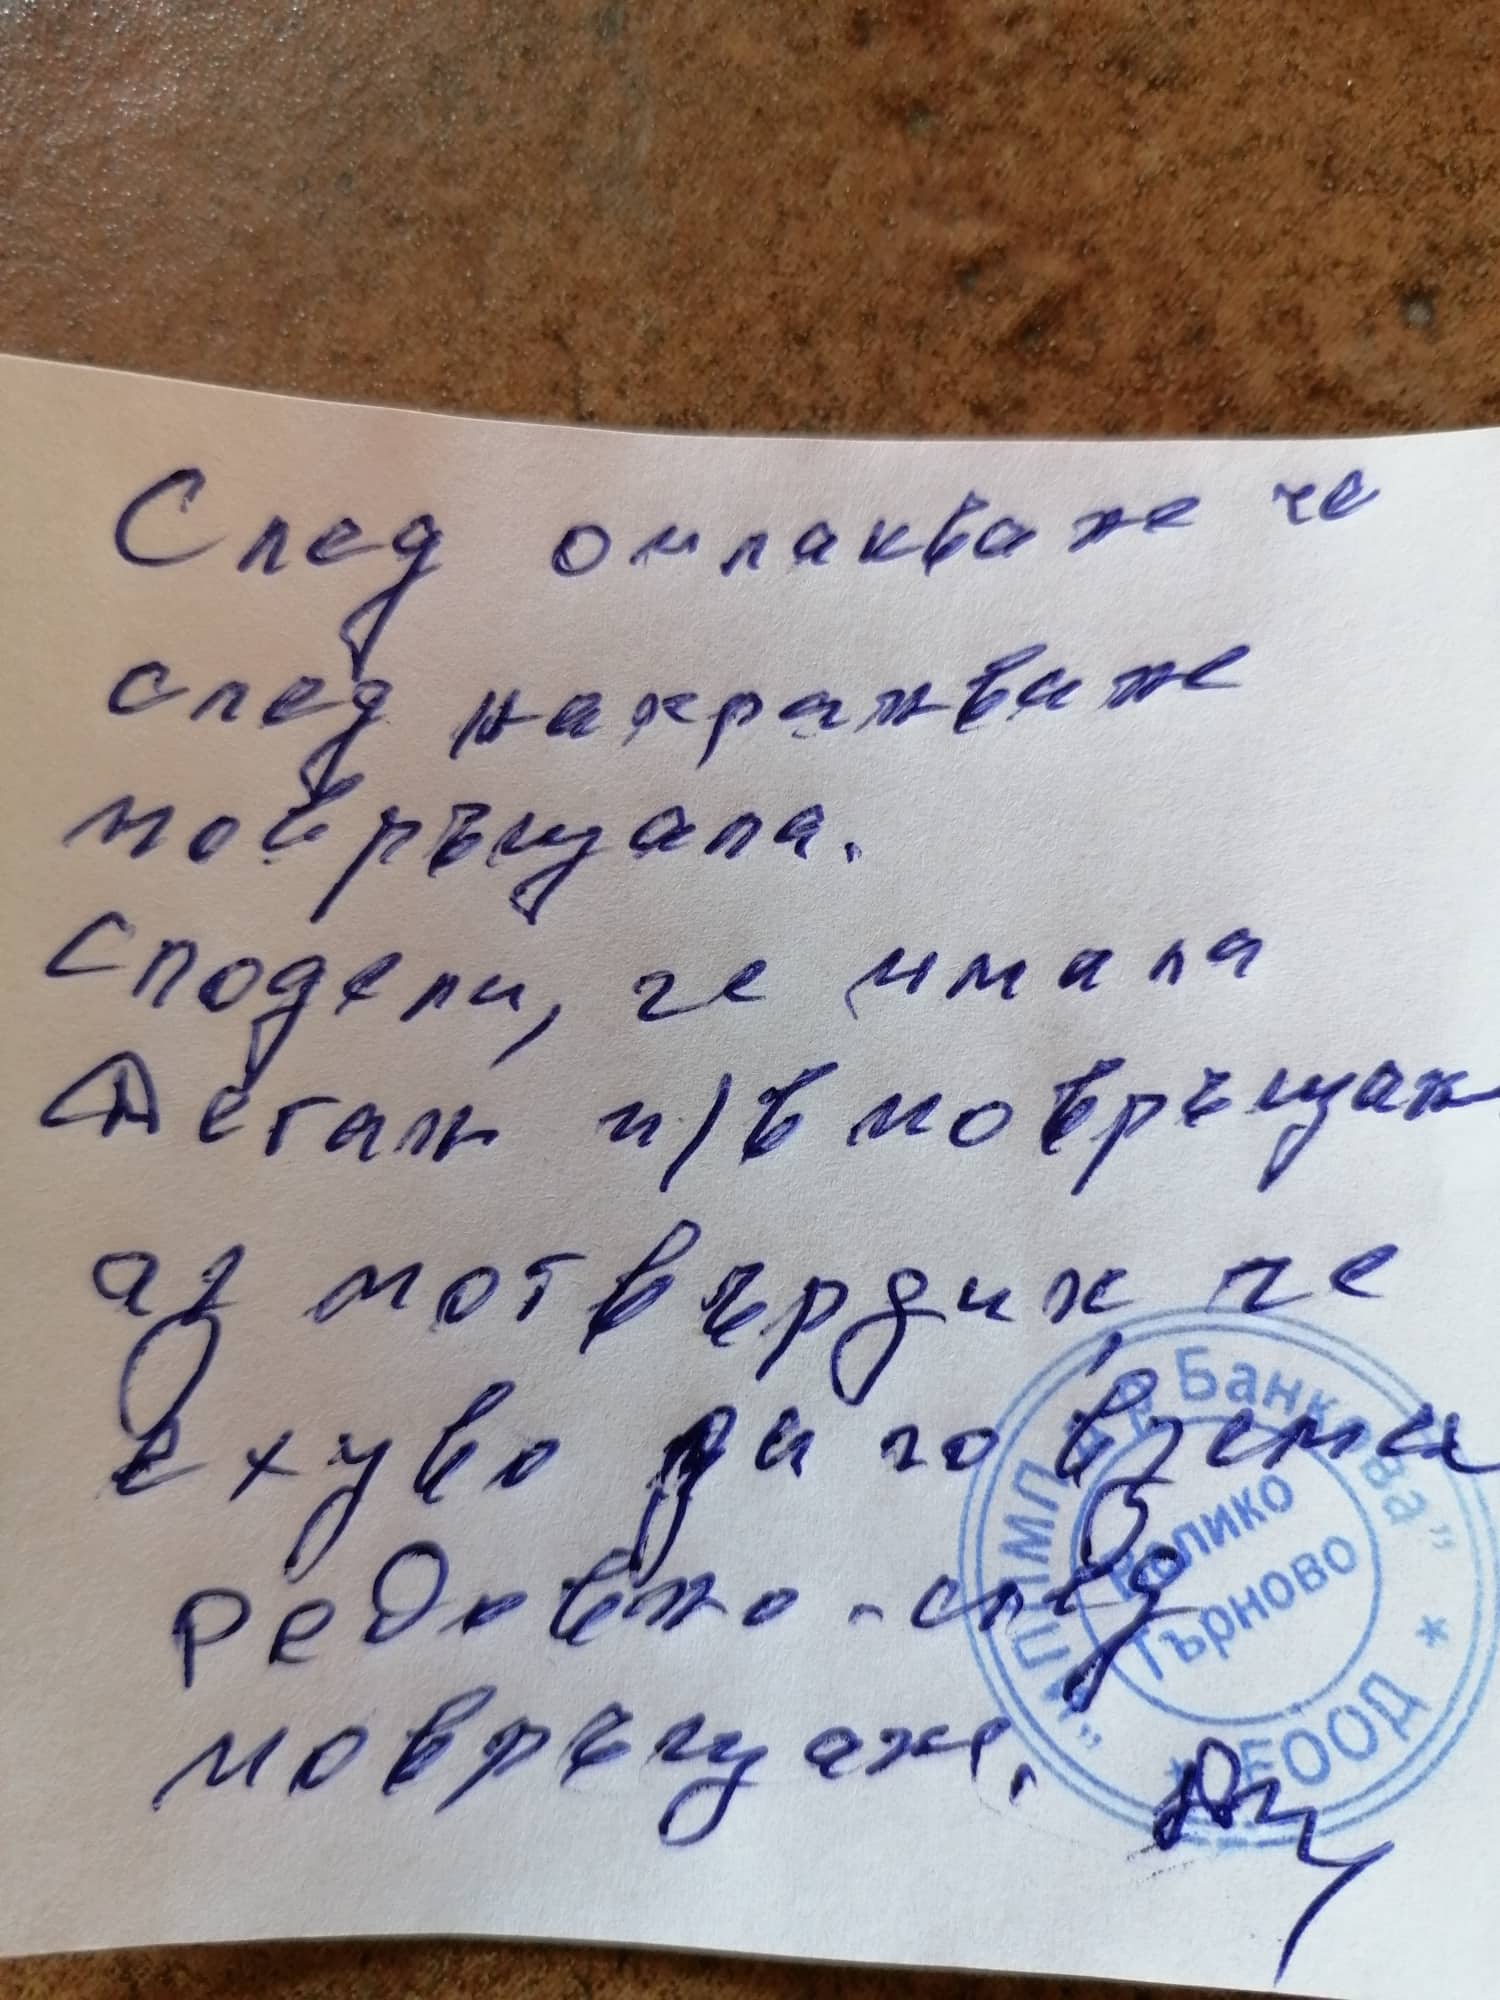 След оплакване че
след нахранване
повръщала.
Сподели, че имала
Деган п/в повръщан
аз потвърдих, че
е хубво да го взема
редовно - след
повръщане.
"ППМП д-р Банкова" ЕООД
Велико
Търново